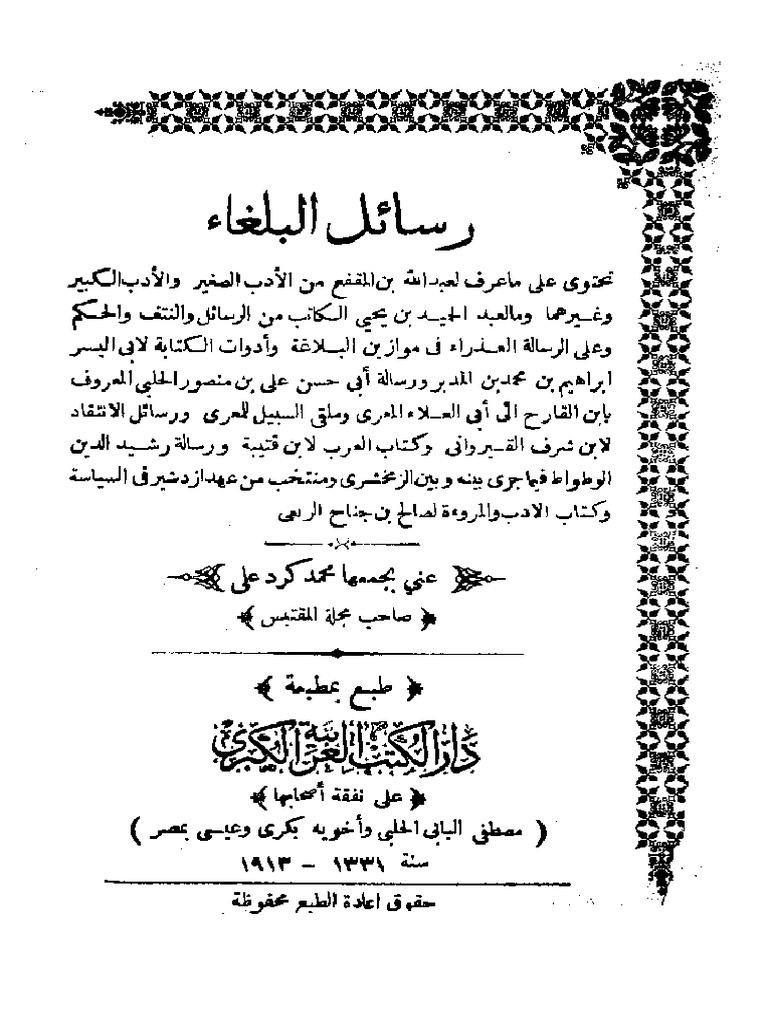 رسائل البلغاء
تحتوى على ماعرف لعبدالله بن المقفع من الأدب الصغير والأدب الكبير
وغيرهما ومالعبد الحميد بن يحيى الكاتب من الرسائل والنتف والحكم
وعلى الرسالة العذراء فى موازين البلاغة وأدوات الكتابة لابى اليسر
ابراهيم بن محمد بن المدبر ورسالة أبي حسن على بن منصور الحلبي المعروف
بابن القارح الى أبي العلاء المعرى وملقى السبيل للمعرى ورسائل الانتقاد
لابن شرف القيروانى وكتاب العرب لابن قتيبة ورسالة رشيد الدين
الوطواط فيما جرى بينه وبين الزمخشرى ومنتخب من عهد ازدشير فى السياسة
وكتاب الادب والمروءة لصالح بن جناح الربعى
عني بجمعها محمد كرد على
﴿ صاحب مجلة المقتبس ﴾
﴿ طبع بمطبعة ﴾
دار الكتب العربية الكبرى
﴿ على نفقة أصحابها ﴾
( مصطفى البابى الحلبي وأخويه بكرى وعيسى بمصر )
سنة ١٣٣١ - ١٩١٣
حقوق اعادة الطبع محفوظة